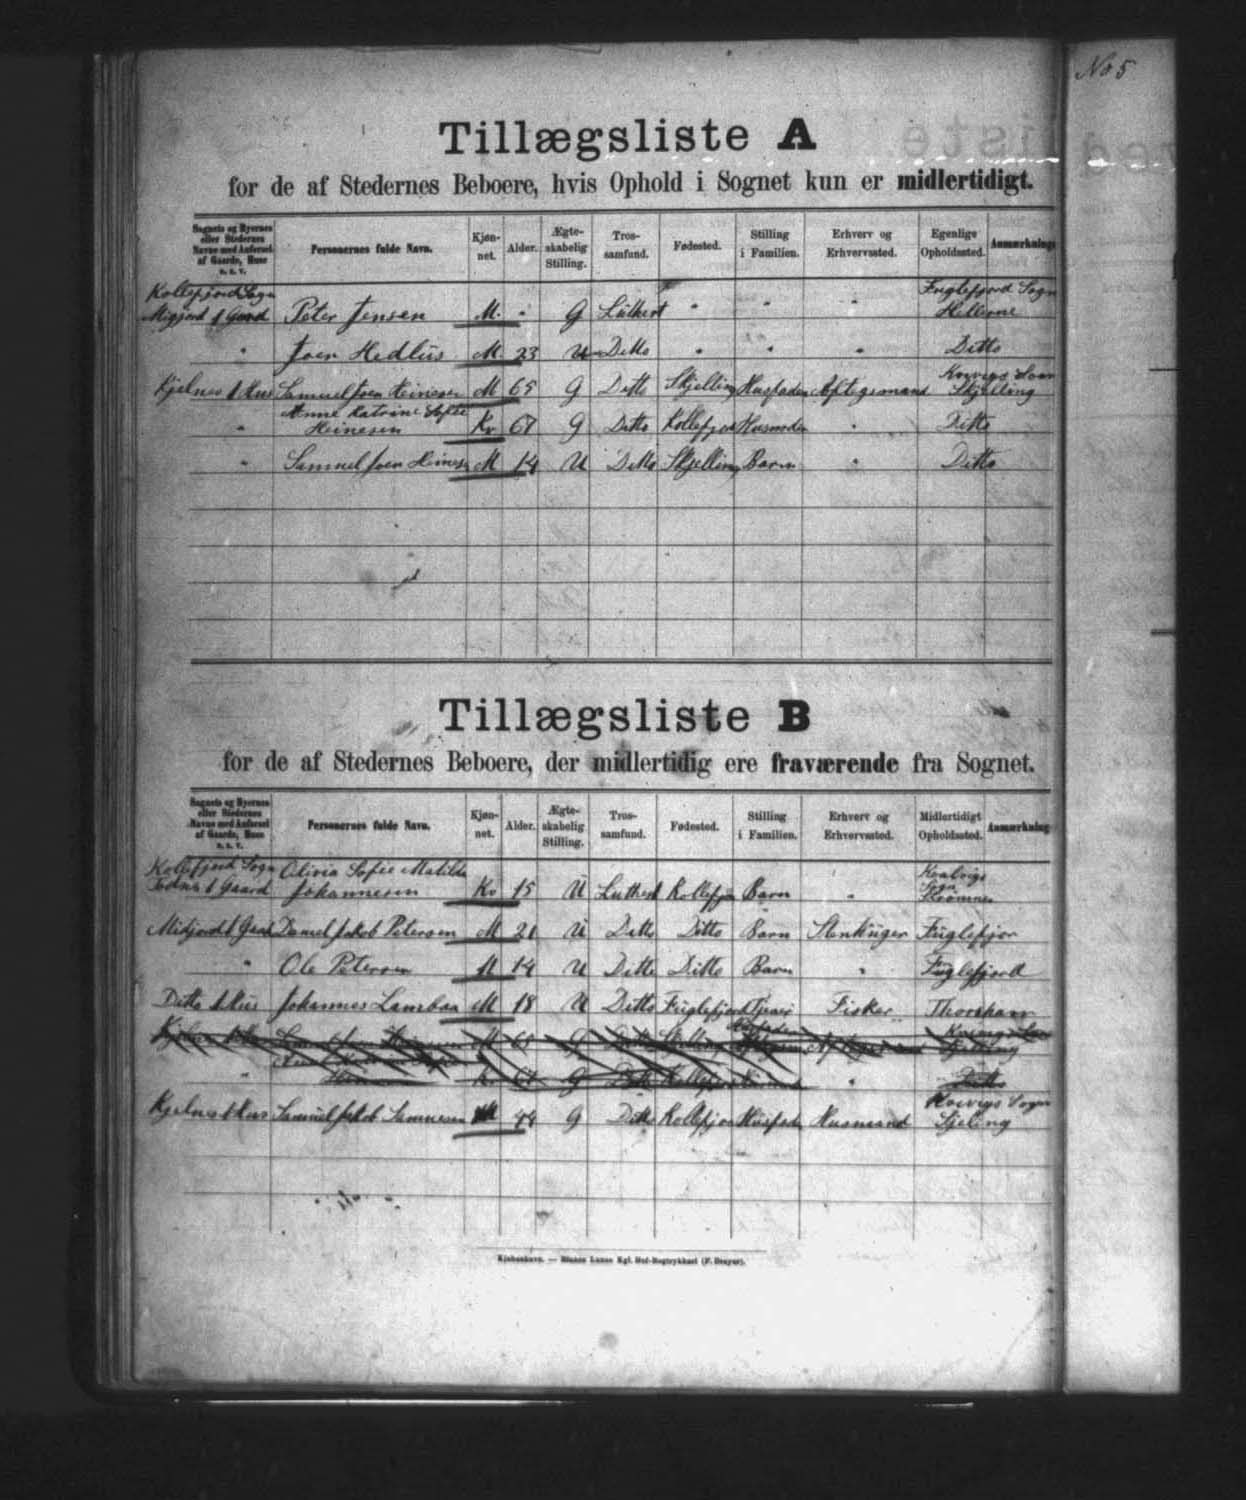 No 5
Tillægsliste A
for de af Stedernes Beboere, hvis Ophold i Sognet kun er midlertidigt.
Sognets og Byernes eller Stedernes Navne med Anførsel af Gaarde, Huse o. s. v. Personernes fulde Navn. Kjøn- net. Alder. Ægte- skabelig Stilling. Tros- samfund. Fødested. Stilling i Familien. Erhverv og Erhvervssted. Egenlige Opholdssted. Anmærkning
Kollefjord Sogn Fuglefjord Sogn
1 Gaard Peter Jensen M. " G Luthert " " " Hellerne
" Joen Hedlüs M 23 U Ditto " " " Ditto
Kjelnes 1 Hus Samuel Joen Heinesen M 65 G Ditto Skjelling Husfader Aftægsmand Skjelling
" Anne Katrine Sofie
Heinesen Kv 67 G Ditto Kollefjord Husmoder " Ditto
" Samuel Joen Heinesen M 14 U Ditto Skjelling Barn " Ditto
Tillægsliste B
for de af Stedernes Beboere, der midlertidig ere fraværende fra Sognet.
Sognets og Byernes eller Stedernes Navne med Anførsel af Gaarde, Huse o. s. v. Personernes fulde Navn. Kjøn- net. Alder. Ægte- skabelig Stilling. Tros- samfund. Fødested. Stilling i Familien. Erhverv og Erhvervssted. Midlertidigt Opholdssted. Anmærkning
Kollefjord Sogn Olivia Sofie Matilda Kvalvigs Sogn
1 Gaard Johannesen Kv 15 U Luthert Kollefjor Barn " Strømnes
Midjord 1 Gaard Daniel Jakob Petersen M 21 U Ditto Ditto Barn Fuglefjor
" Ole Petersen M 14 U Ditto Ditto Barn " Fuglefjord
Ditto 1 Hus Johannes Lambaa M 18 U Ditto Fuglefjord Tjener Fisker Thorshavn
Kjelnes 1 Hus Samuel Jakob Samuesen M 44 G Ditto Kollefjor Husfader Husmand Kvivigs Sogn
Sjeling
Kjøbenhavn. — Bianco Lunos Kgl. Hof-Bogtrykkeri (F. Dreyer).